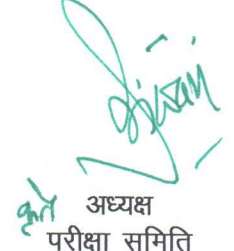 कृते अध्यक्ष
परीक्षा समिति